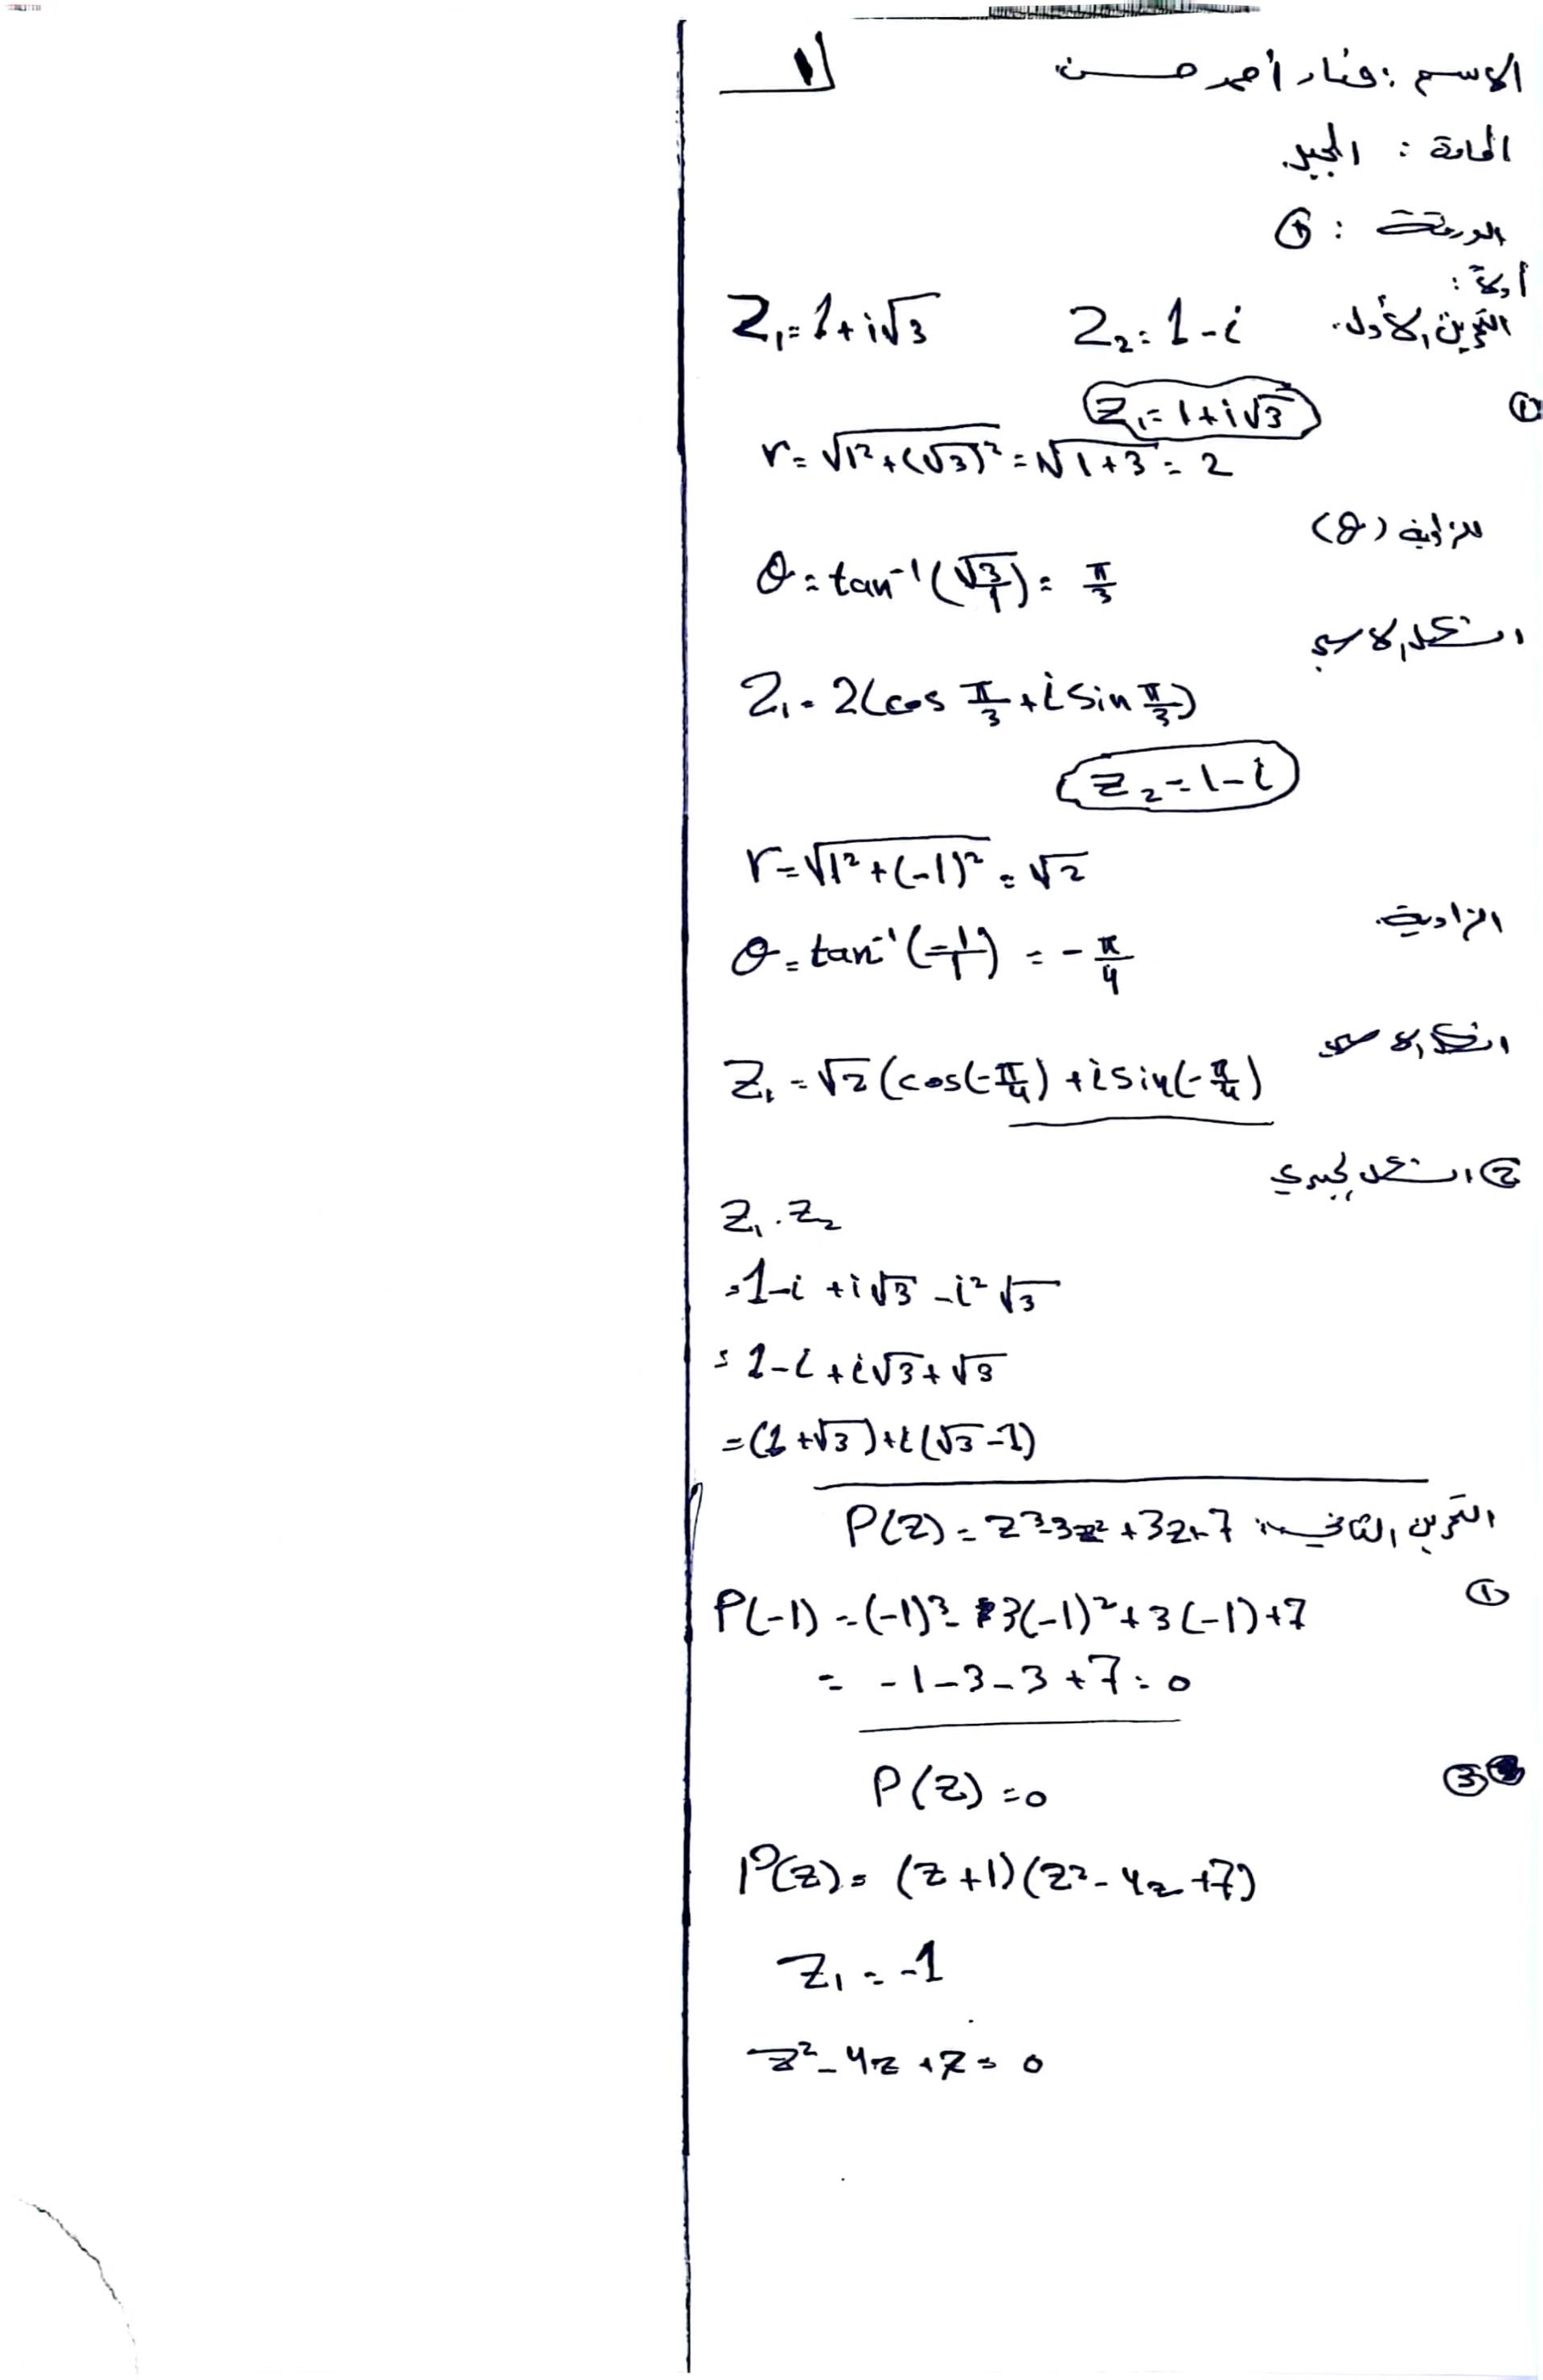 الاسم : فنار أحمد حسن
1
المادة : الجبر
الورقة :
أولاً :
التمرين الأول
Z₁ = 1 + i√3 Z₂ = 1 - i
① Z₁ = 1 + i√3
r = √1² + (√3)² = √1 + 3 = 2
للزاوية (θ)
θ = tan⁻¹(√3/1) = π/3
الشكل الأسي
Z₁ = 2(cos π/3 + i sin π/3)
Z₂ = 1 - i
r = √1² + (-1)² = √2
الزاوية
θ = tan⁻¹(-1/1) = -π/4
الشكل الأسي
Z₁ = √2 (cos(-π/4) + i sin(-π/4)
② الشكل الجبري
Z₁ . Z₂
= 1 - i + i√3 - i²√3
= 1 - i + i√3 + √3
= (1 + √3) + i(√3 - 1)
التمرين الثاني : P(Z) = Z³ - 3Z² + 3Z + 7
① P(-1) = (-1)³ - 3(-1)² + 3(-1) + 7
= -1 - 3 - 3 + 7 = 0
③ P(Z) = 0
P(Z) = (Z + 1)(Z² - 4Z + 7)
Z₁ = -1
Z² - 4Z + 7 = 0